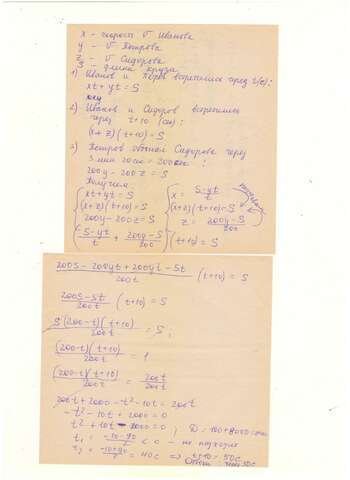 x - скорость υ Иванова
y - υ Петрова
z - υ Сидорова
S - длина круга
1) Иванов и Петров встретились через t(с):
xt + yt = S
2) Иванов и Сидоров встретились
через t+10 (сек):
(x+z)(t+10) = S
3) Петров обогнал Сидорова через
3 мин 20 сек = 200 сек:
200y - 200z = S
Получаем:
xt + yt = S
(x+z)(t+10) = S
200y - 200z = S
x = (S-yt)/t
(x+z)(t+10) = S
z = (200y-S)/200
((S-yt)/t + (200y-S)/200)(t+10) = S
(200S - 200yt + 200yt - St)/200t (t+10) = S
(200S-St)/200t (t+10) = S
S(200-t)(t+10)/200t = S;
(200-t)(t+10)/200t = 1
(200-t)(t+10)/200t = 200t/200t
200t + 2000 - t² - 10t = 200t
-t² - 10t + 2000 = 0
t² + 10t - 2000 = 0; D = 100+8000
t₁ = (-10-90)/2 < 0 - не подходит
t₂ = (-10+90)/2 = 40с ⇒ t+10 = 50с
Ответ: 50с